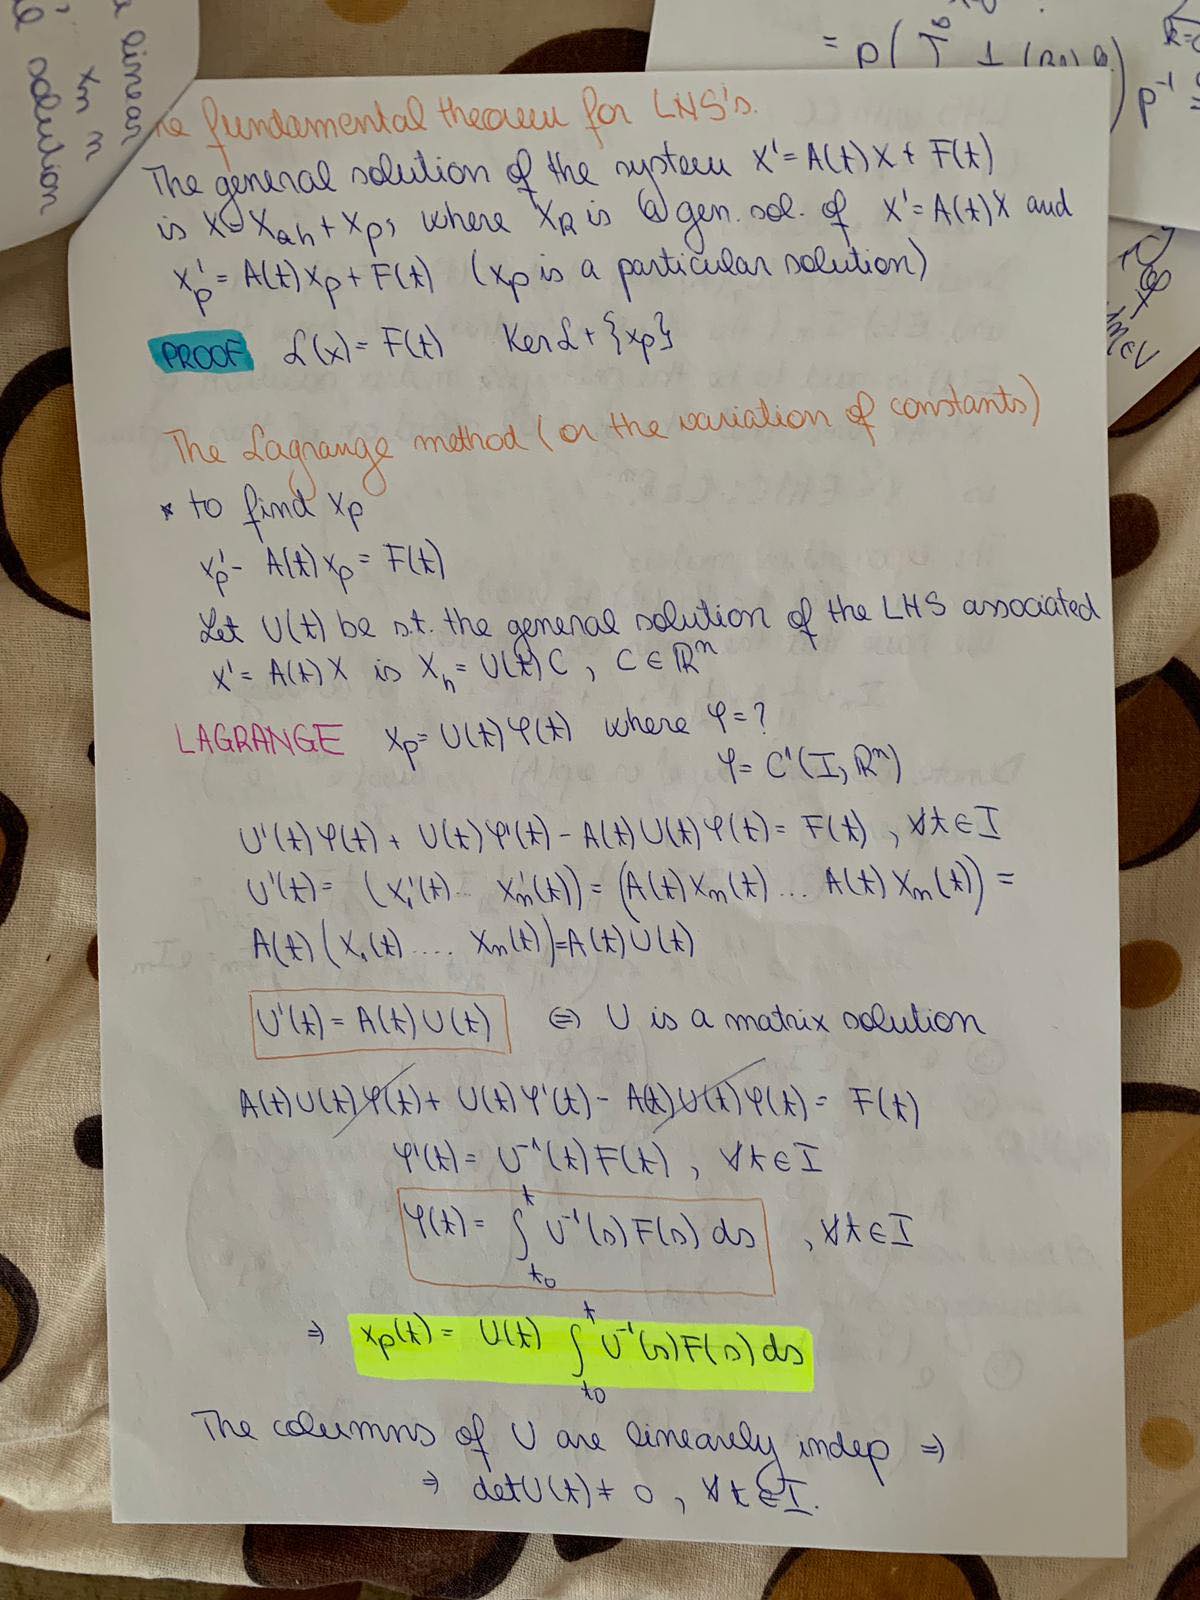 he fundamental theorem for LNS's.
The general solution of the system X' = A(t)X + F(t)
is X = X_ah + X_p, where X_h is a gen. sol. of X' = A(t)X and
X_p' = A(t)X_p + F(t) (X_p is a particular solution)
PROOF ℒ(x) = F(t) Ker ℒ + {x_p}
The Lagrange method (or the variation of constants)
* to find X_p
X_p' - A(t)X_p = F(t)
Let U(t) be s.t. the general solution of the LHS associated
X' = A(t)X is X_h = U(t)C, C ∈ ℝⁿ
LAGRANGE X_p = U(t)φ(t) where φ = ?
φ = C¹(I, ℝⁿ)
U'(t)φ(t) + U(t)φ'(t) - A(t)U(t)φ(t) = F(t), ∀t ∈ I
U'(t) = (X₁'(t) ... X_n'(t)) = (A(t)X_n(t) ... A(t)X_n(t)) =
A(t)(X₁(t) .... X_n(t)) = A(t)U(t)
U'(t) = A(t)U(t) ⇔ U is a matrix solution
A(t)U(t)φ(t) + U(t)φ'(t) - A(t)U(t)φ(t) = F(t)
φ'(t) = U⁻¹(t)F(t), ∀t ∈ I
φ(t) = ∫_{t₀}^{t} U⁻¹(s)F(s)ds, ∀t ∈ I
⇒ x_p(t) = U(t) ∫_{t₀}^{t} U⁻¹(s)F(s)ds
The columns of U are linearely indep ⇒
⇒ det U(t) ≠ 0, ∀t ∈ I.
linear
x_n n
solution